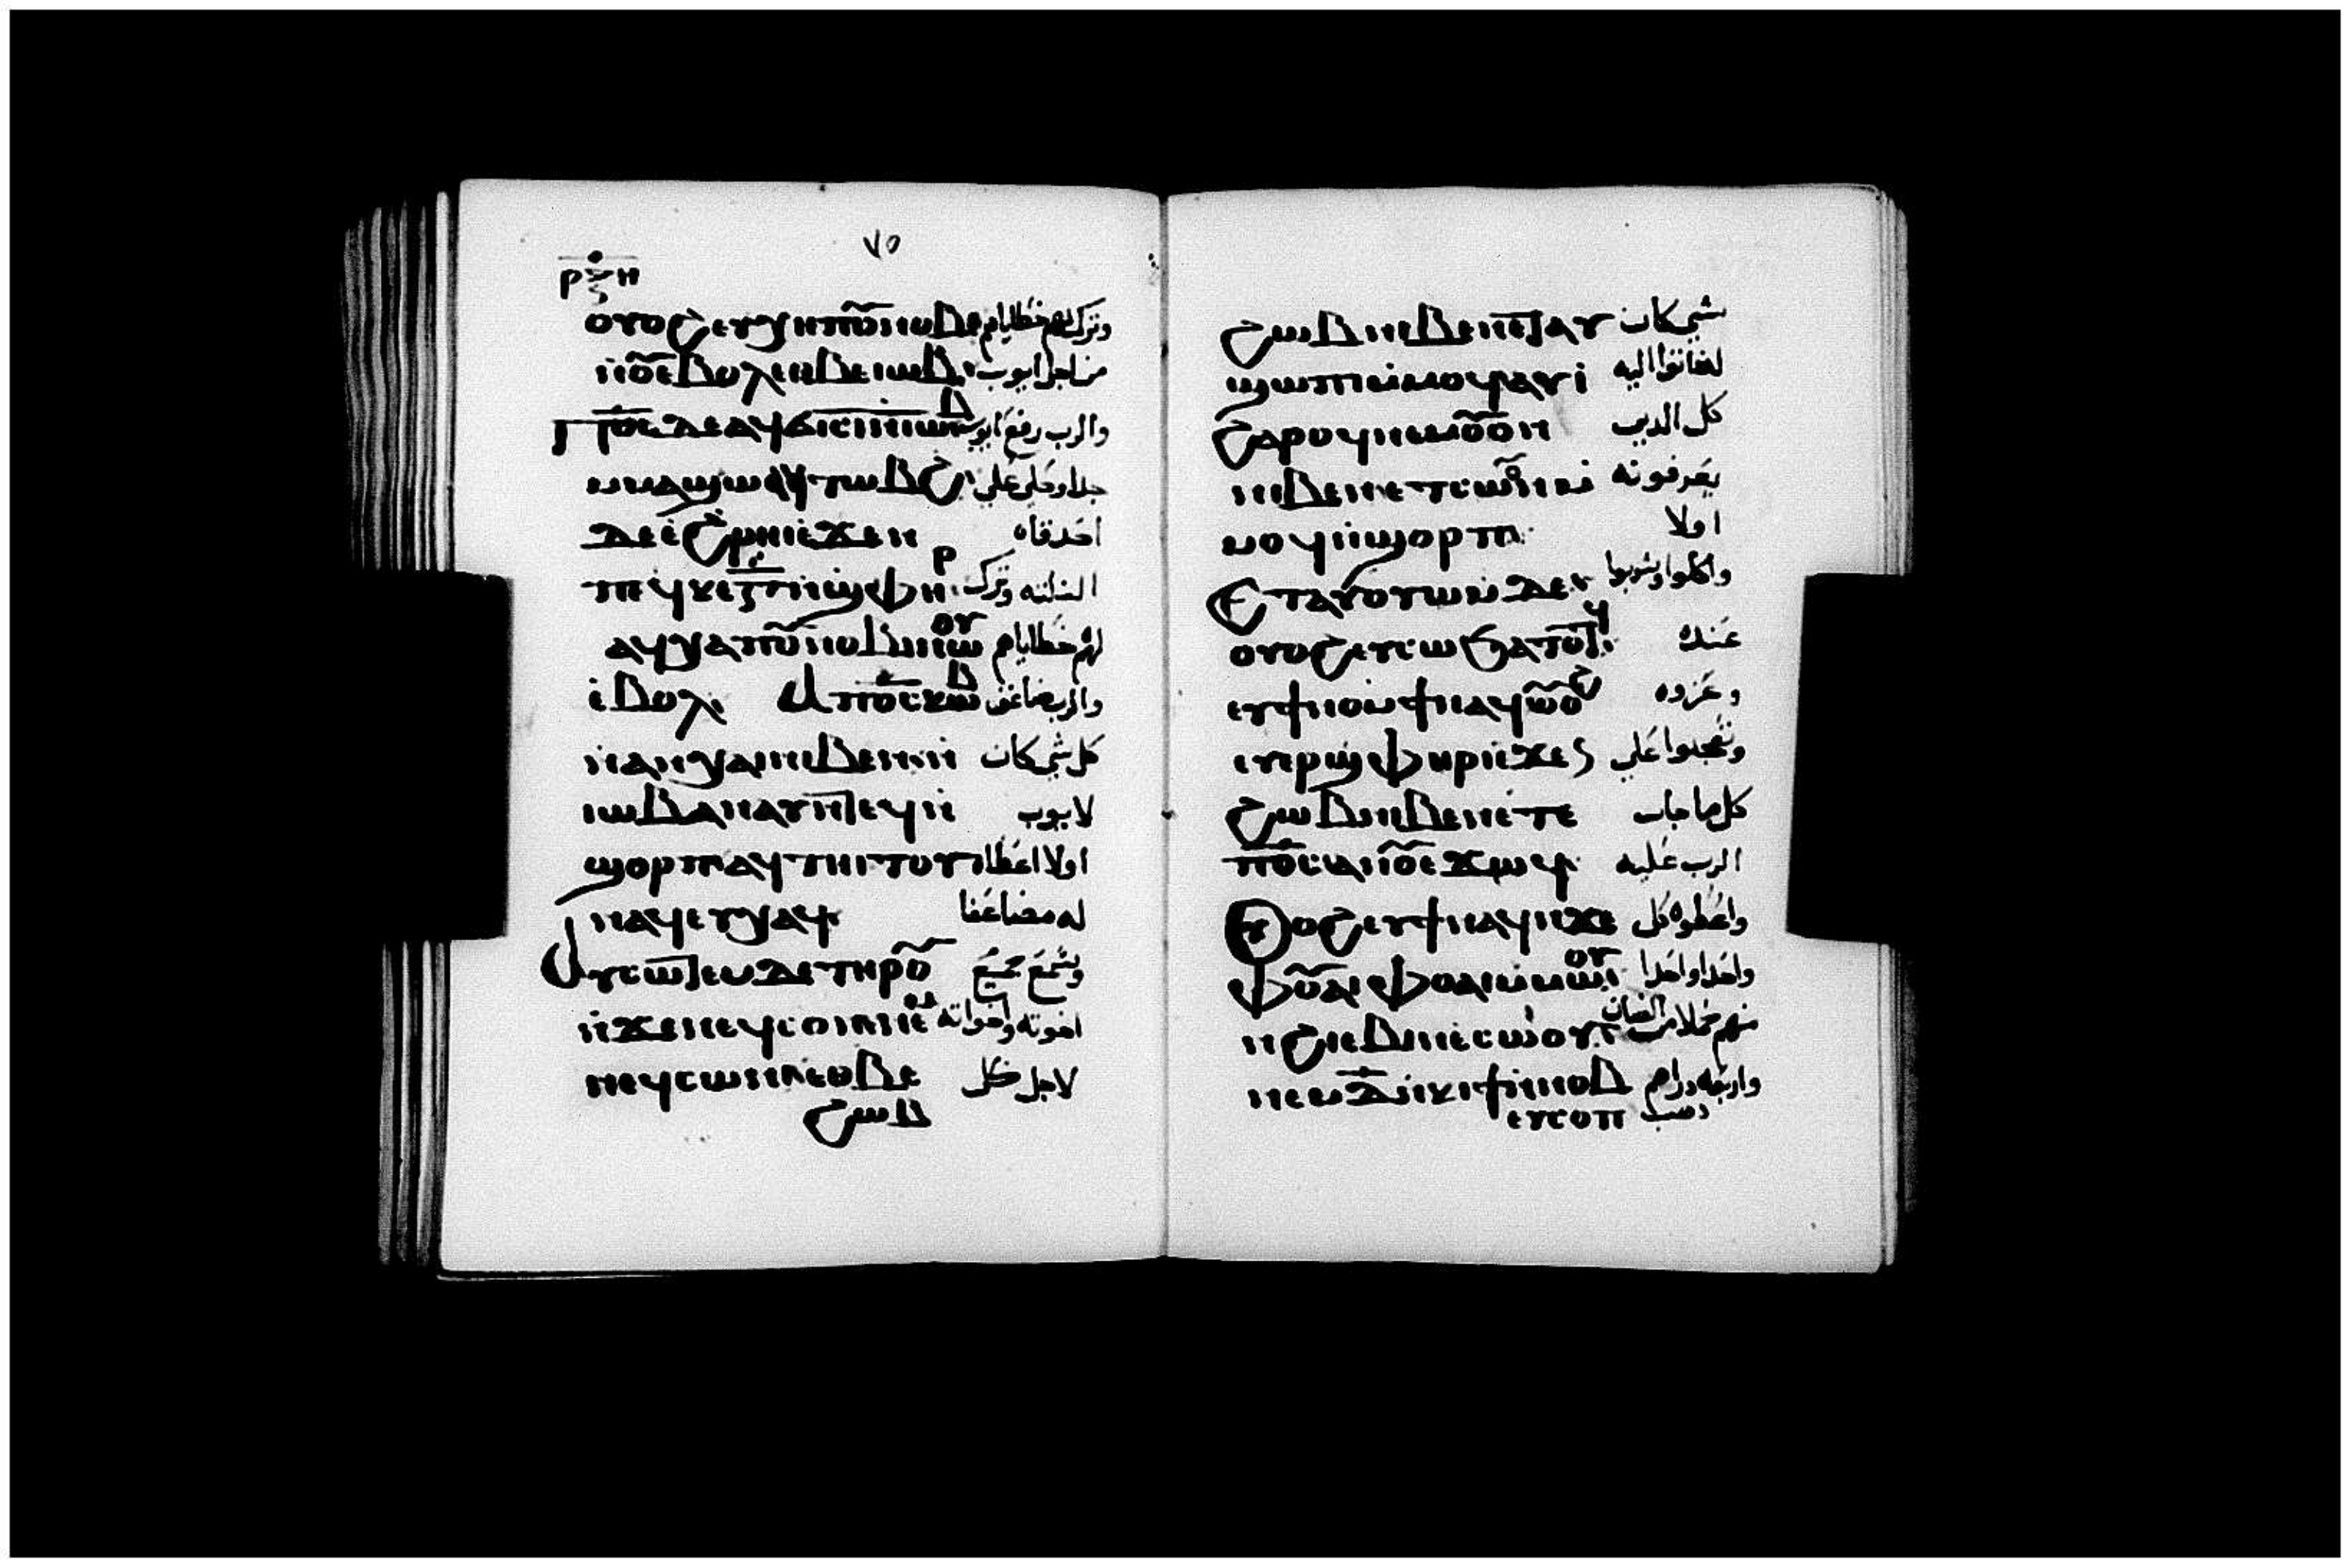 ٧٥
ⲟⲩⲟϩⲉⲩⲭⲏⲡⲟ̅ⲩⲛⲟⲃⲓ وترك لهم خطاياهم
ⲛⲟ̅ⲉⲃⲟⲗⲉⲑⲃⲉⲓⲱⲃ من اجل ايوب
ⲡϭ̅ⲥⲇⲉⲁϥϭⲓⲥⲓⲛⲓⲱⲃ والرب رفع ايوب
ⲙⲙⲁϣⲱⲁϥⲧⲱⲃϩ جدا وصلي علي
ⲇⲉⲉ̀ϩⲣⲏⲓⲉ̀ϫⲉⲛ اصدقاه
ⲡⲉϥⲕⲉⲅ̅ⲛ̀ϣⲫⲏⲣ الثلثه وترك
ⲁϥⲭⲁⲡⲟ̅ⲩⲛⲟⲃⲓⲛⲱⲟⲩ لهم خطاياهم
ⲉ̀ⲃⲟⲗ ⲁⲡϭ̅ⲥⲕⲱⲃ والرب ضاعف
ⲛ̀ⲁⲛⲭⲁⲓⲛⲓⲃⲉⲛ كل شي كان
ⲓⲱⲃⲁⲛⲁⲩⲛ̅ⲧⲉϥⲛ̀ لايوب
ϣⲟⲣⲡⲁϥⲧⲏⲓⲧⲟⲩ اولا اعطا
ⲛⲁϥⲉⲩⲭⲁϥ له مضاعفا
ⲁⲩⲥⲱⲧⲉⲙⲇⲉⲧⲏⲣⲟ̅ وسمع جميع
ⲛ̀ϫⲉⲛⲉϥⲥⲟⲛⲛⲉⲙ اخوته واخواته
ⲛⲉϥⲥⲱⲛⲓⲉⲑⲃⲉ لاجل كل
ϩⲱⲃ
ϩⲱⲃⲛⲓⲃⲉⲛⲉⲧⲁⲩ شي كان
ϣⲱⲡⲓⲙ̀ⲙⲟϥⲁⲩⲓ̀ اليه
ϩⲁⲣⲟϥⲛⲉⲙⲟ̅ⲟⲛ كل الدين
ⲛⲓⲃⲉⲛⲉⲧⲥⲱⲟⲩⲛⲙ̀ يعرفونه
ⲙⲟϥⲛ̀ϣⲟⲣⲡ اولا
ⲉⲧⲁⲩⲟⲩⲱⲙⲇⲉ واكلوا وشربوا
ⲟⲩⲟϩⲉⲩⲥⲱϧⲁⲧⲟⲧϥ عنده
ⲉⲩϯⲛⲟⲙϯⲛⲁϥⲟⲩⲟϩ وعزوه
ⲉⲩⲉⲣϣⲫⲏⲣⲓⲉ̀ϫⲉⲛ وتعجبوا علي
ϩⲱⲃⲛⲓⲃⲉⲛⲉ̀ⲧⲉ كل ما جاب
ⲡϭ̅ⲥⲁⲛⲟ̅ⲉϫⲱϥ الرب عليه
ⲟⲩⲟϩⲉⲩϯⲛⲁϥⲛ̀ϫⲉ واعطوه كل
ⲫⲟ̅ⲁⲓⲫⲟⲩⲁⲓⲙ̀ⲙⲱⲟⲩ واحدا واحدا
ⲛϩⲓⲉⲃⲛⲉ̀ⲥⲱⲟⲩ منهم حملا من الضان
ⲛⲉⲙⲇ̅ⲛ̀ⲕⲓϯⲛ̀ⲛⲟⲩⲃ واربعه دراهم
ⲉⲩⲥⲟⲡ دهب